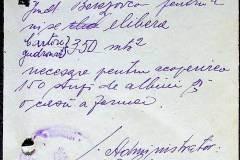 Jud. Berezovca pentru a
ni se elibera
Cartone
gudronat 350 mtr²
necesare pentru acoperirea
150 stupi de albine și
o casă a fermei
Administrator